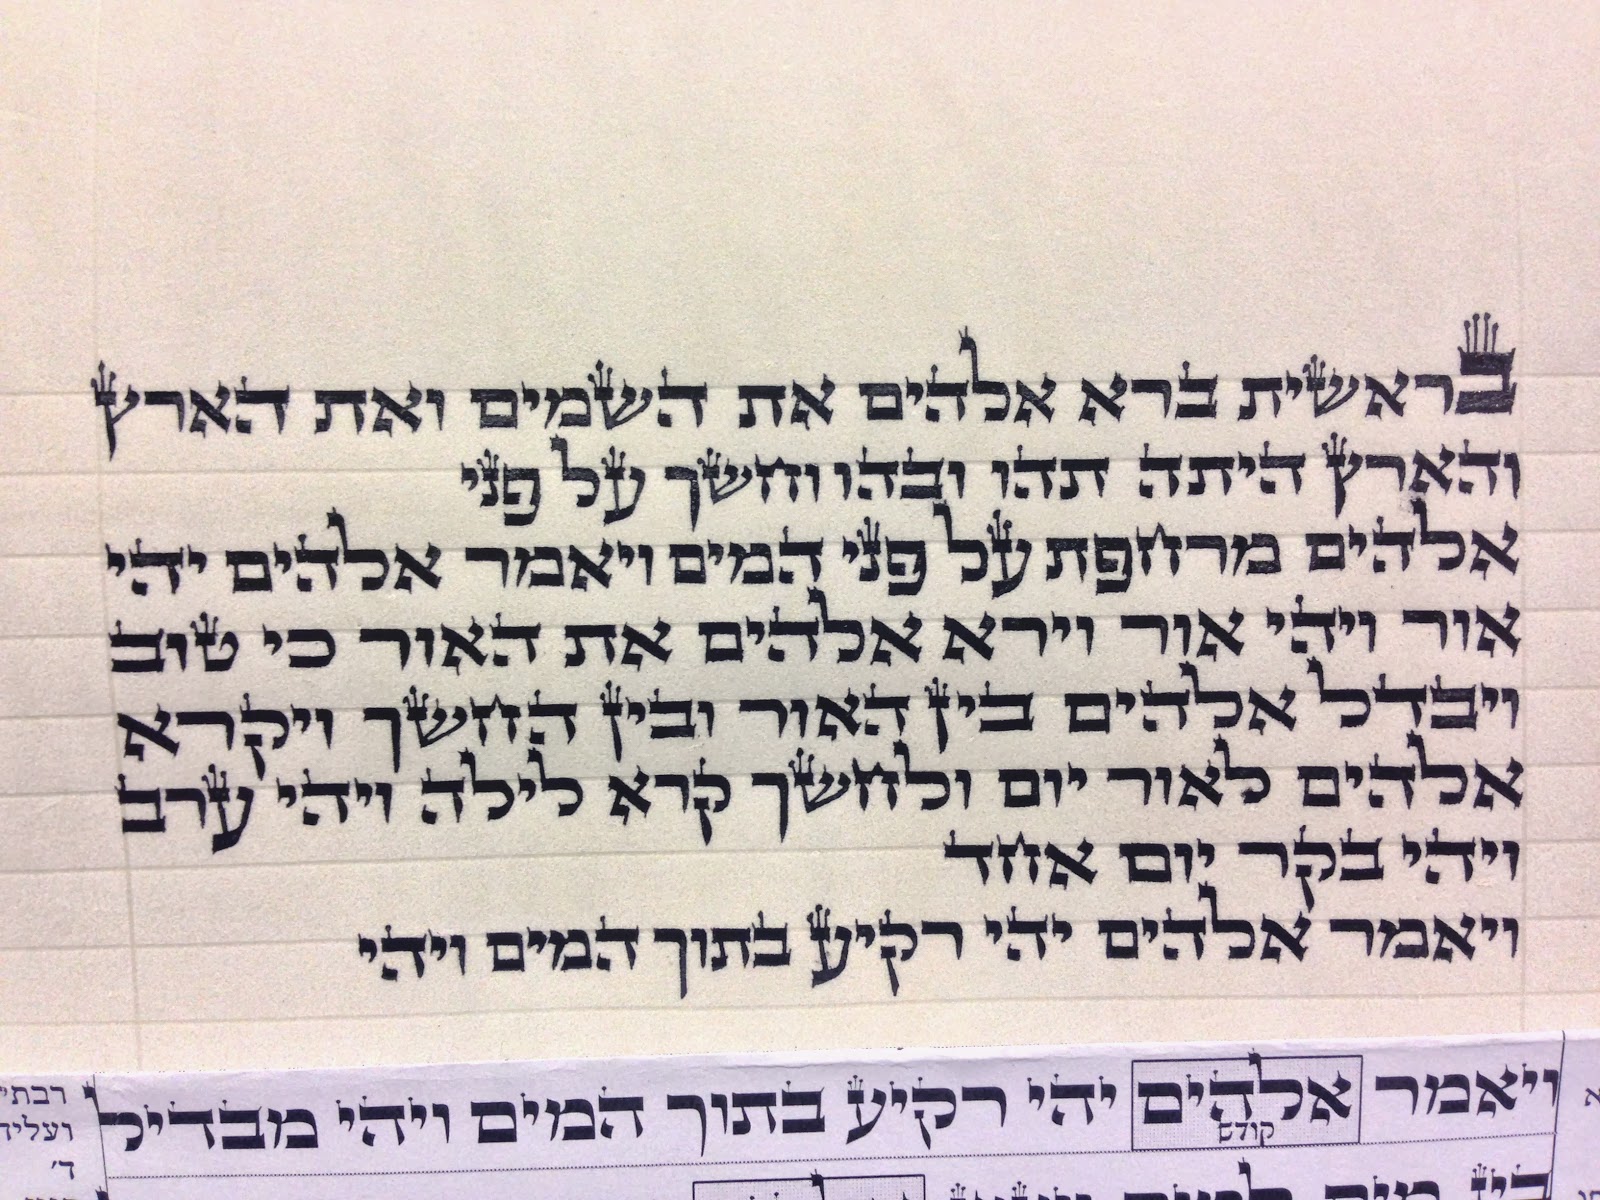 בראשית ברא אלהים את השמים ואת הארץ
והארץ היתה תהו ובהו וחשך על פני
אלהים מרחפת על פני המים ויאמר אלהים יהי
אור ויהי אור וירא אלהים את האור כי טוב
ויבדל אלהים בין האור ובין החשך ויקרא
אלהים לאור יום ולחשך קרא לילה ויהי ערב
ויהי בקר יום אחד
ויאמר אלהים יהי רקיע בתוך המים ויהי
ויאמר אלהים יהי רקיע בתוך המים ויהי מבדיל
קודש
רבתי
ועליה
ד׳
בין מים למים